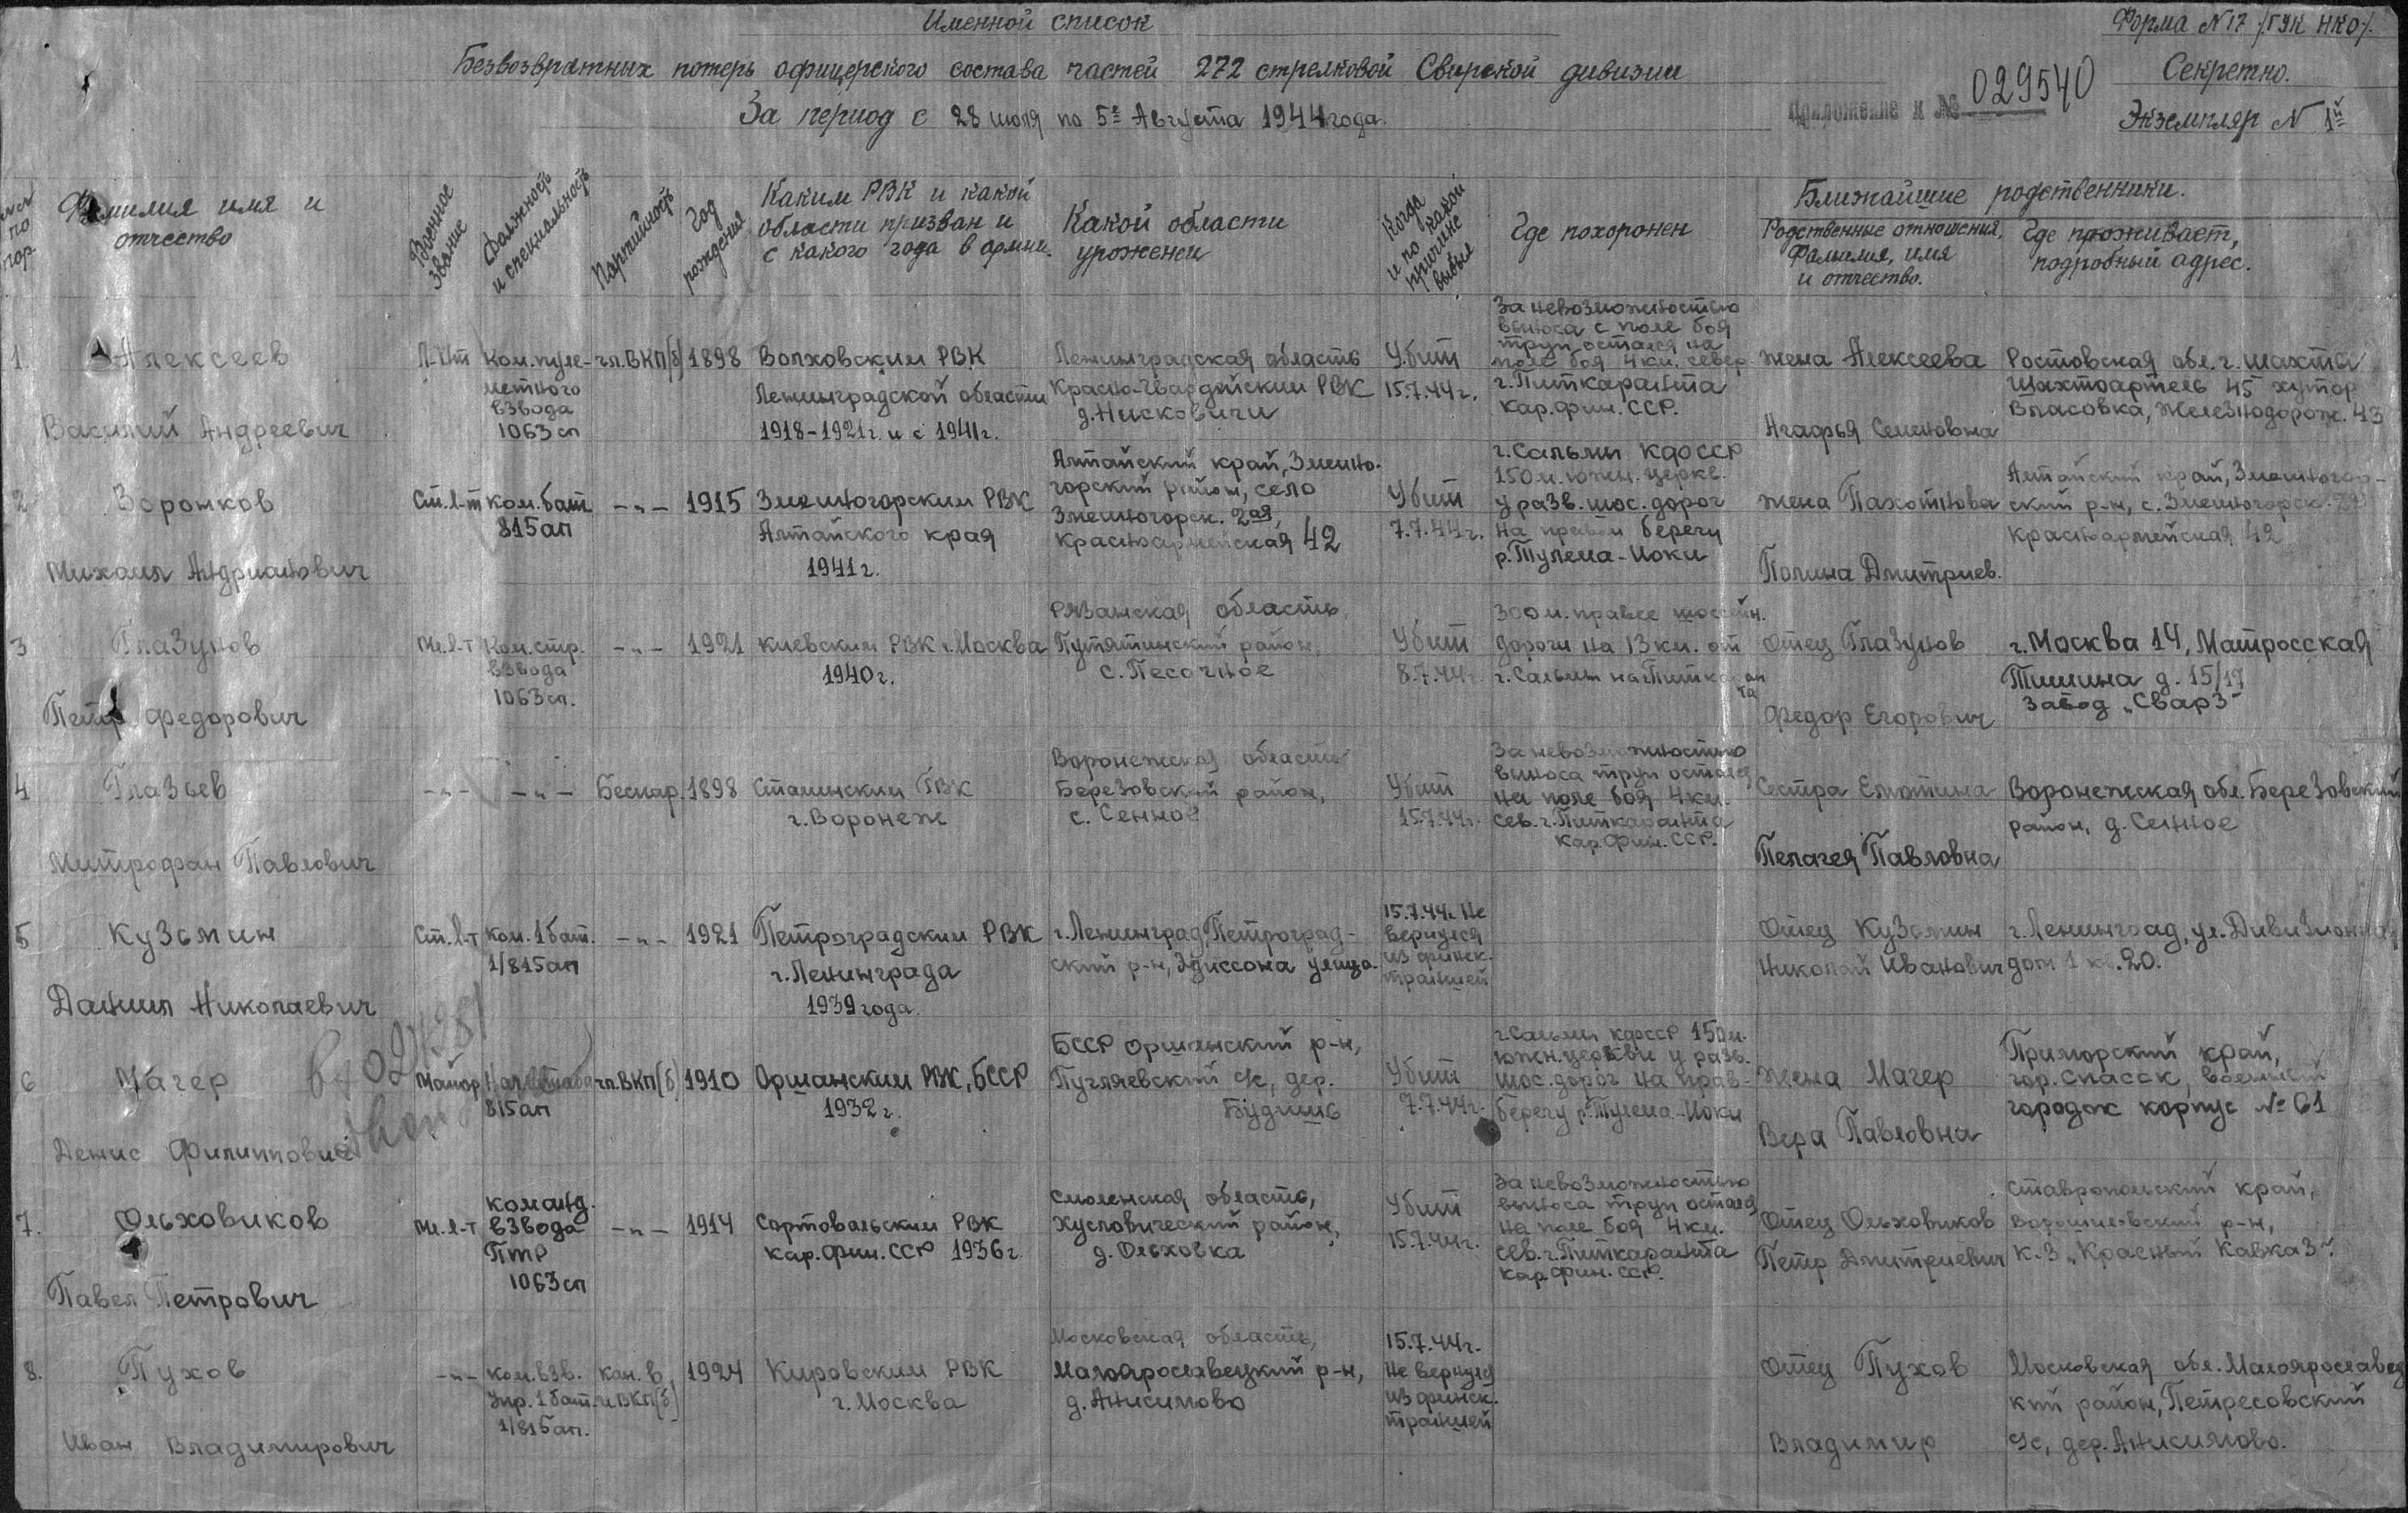 Именной список
Форма N 17 /ГУК НКО/.
Безвозвратных потерь офицерского состава частей 272 стрелковой Свирской дивизии
Секретно.
За период с 28 июля по 5е Августа 1944 года.
Приложение к № 029540
Экземпляр N 1й
по пор.
Фамилия имя и
отчество
Военное
звание
Должность
и специальность
Партийность
Год
рождения
Каким РВК и какой
области призван и
с какого года в армии.
Какой области
уроженец
Когда
и по какой
причине
выбыл
Где похоронен
Ближайшие родственники.
Родственные отношения,
Фамилия, имя
и отчество.
Где проживает,
подробный адрес.
1.
Алексеев
Василий Андреевич
Л-нт
Ком. пуле-
метного
взвода
1063 сп
чл. ВКП(б)
1898
Волховским РВК
Ленинградской области
1918-1921г. и с 1941г.
Ленинградская область
Красно-Гвардейским РВК
д. Нисковичи
Убит
15.7.44г.
За невозможностью
выноса с поле боя
труп остался на
поле боя 4 км. север.
г. Питкаранта
Кар. фин. ССР.
жена Алексеева
Агафья Семеновна
Ростовская обл. г. шахты
Шахтоартель 45 хутор
Власовка, Железнодорож. 43
2
Воронков
Михаил Андрианович
Ст. л-т
ком. бат.
815 ап
-"-
1915
Змеиногорским РВК
Алтайского края
1941г.
Алтайский край, Змеино-
горский район, село
Змеиногорск. 2ая,
Красноармейская 42
Убит
7.7.44г.
г. Сальми КФССР
150 м. южн. церкв.
у разв. шос. дорог
на правом берегу
р. Тулема-Иоки
жена Пахотнова
Полина Дмитриев.
Алтайский край, Змеиногор-
ский р-н, с. Змеиногорск.
Красноармейская 42
3
Глазунов
Петр Федорович
Мл. л-т
Ком. стр.
взвода
1063 сп.
-"-
1921
Киевским РВК г. Москва
1940г.
Рязанская область,
Путятинский район,
с. Песочное
Убит
8.7.44г.
300 м. правее шоссейн.
дороги на 13 км. от
г. Сальми на
Отец Глазунов
Федор Егорович
г. Москва 14, Матросская
Тишина д. 15/17
Завод „Сварз"
4
Глазьев
Митрофан Павлович
-"-
-"-
Беспар.
1898
Сталинским РВК
г. Воронеж
Воронежская область
Березовский район,
с. Сенное
Убит
15.7.44г.
За невозможностью
выноса труп остался
на поле боя 4 км.
Сев. г. Питкаранта
Кар. Фин. ССР.
Сестра
Пелагея Павловна
Воронежская обл. Березовский
район, д. Сенное
5
Кузьмин
Даниил Николаевич
Ст. л-т
Ком. 1 бат.
1/815 ап
-"-
1921
Петроградским РВК
г. Ленинграда
1939 года.
г. Ленинград Петроград-
ский р-н, Эдиссона улица.
15.7.44г. Не
вернулся
из финск.
траншей
Отец Кузьмин
Николай Иванович
г. Ленинград, ул. Дивизионная
дом 1 кв. 20.
6
Магер
Денис Филиппович
Майор
Нач. штаба
815 ап
чл. ВКП(б)
1910
Оршанским РВК, БССР
1932 г.
БССР Оршанский р-н,
Пугляевский с/с, дер.
Будишь
Убит
7.7.44г.
г. Сальми КФССР 150 м.
южн. церкви у разв.
шос. дорог на прав.
берегу р. Тулема-Иоки
Жена Магер
Вера Павловна
Приморский край,
гор. Спасск, военный
городок корпус № 61
7.
Ольховиков
Павел Петрович
Мл. л-т
Команд.
взвода
ПТР
1063 сп
-"-
1914
Сортовальским РВК
Кар. Фин. ССР 1936 г.
Смоленская область,
Хусловический район,
д. Ольховка
Убит
15.7.44г.
За невозможностью
выноса труп остался
на поле боя 4 км.
сев. г. Питкаранта
Кар. фин. ССР.
Отец Ольховиков
Петр Дмитриевич
Ставропольский край,
Ворошиловский р-н,
к-з „Красный Кавказ".
8.
Пухов
Иван Владимирович
-"-
Ком. взв.
Упр. 1 бат.
1/815 ап.
Кан. в
чл. ВКП(б)
1924
Кировским РВК
г. Москва
Московская область,
Малоярославецкий р-н,
д. Анисимово
15.7.44г.
Не вернулся
из финск.
траншей
Отец Пухов
Владимир
Московская обл. Малоярославец
кий район, Петресовский
с/с, дер. Анисимово.